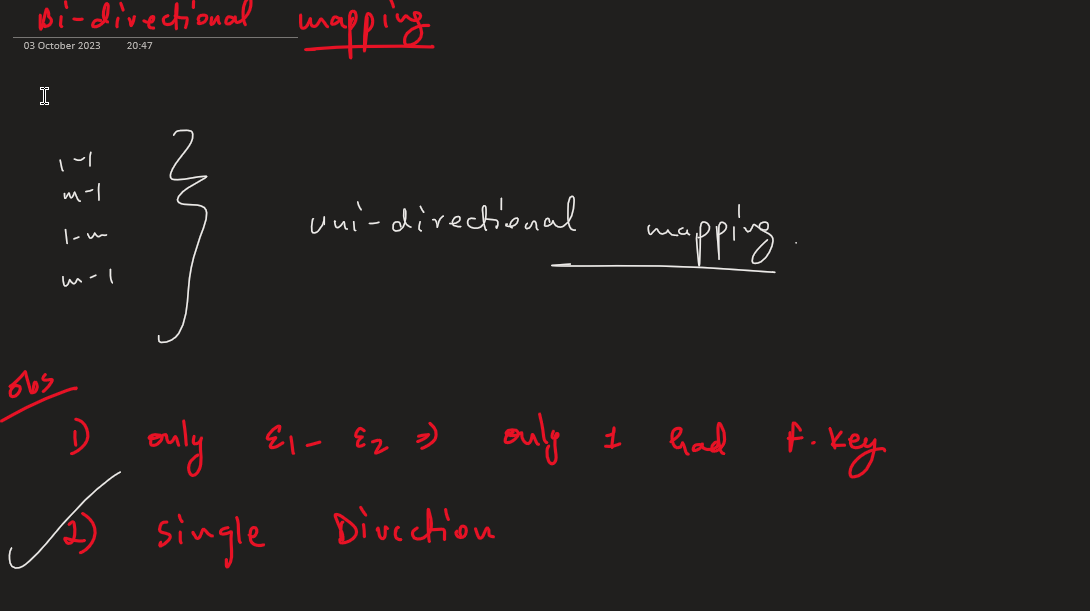 Bi-directional mapping
03 October 2023 20:47
1-1
m-1
1-m
m-1
uni-directional mapping.
Obs
1) only E1 - E2 => only 1 had f. key
2) Single Direction